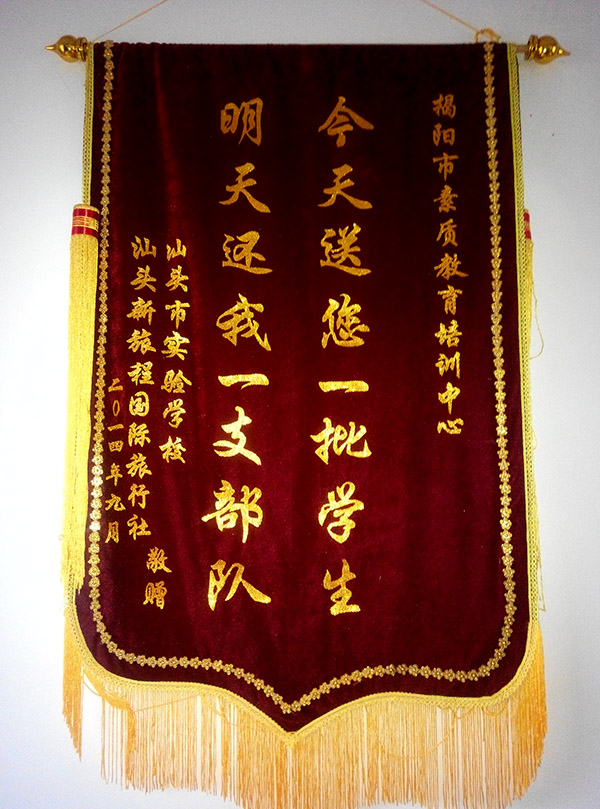 揭阳市素质教育培训中心
今天送您一批学生
明天还我一支部队
汕头市实验学校
汕头新旅程国际旅行社
敬赠
二〇一四年九月